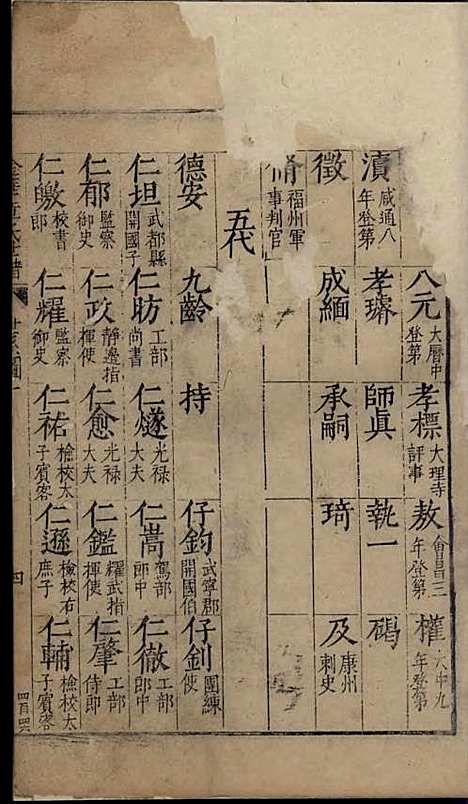 八元 大曆中登第 孝標 大理寺評事 敖 會昌三年登第 權 大中九年登第
瀆 咸通八年登第 孝璿 師眞 執一 碣
徵 成緬 承嗣 琦 及 康州刺史
福州軍事判官
五代
德安 九齡 持 仔鈞 武寧郡開國伯 仔釗 團練使
仁坦 武都縣開國子 仁昉 工部尚書 仁燧 光禄大夫 仁嵩 駕部郎中 仁徹 工部郎中
仁郁 監察御史 仁政 靜邊指揮使 仁愈 光禄大夫 仁鑑 耀武指揮使 仁肇 工部侍郎
仁皦 校書郎 仁耀 監察御史 仁祐 檢校太子賓客 仁遜 檢校右庶子 仁輔 檢校太子賓客
四